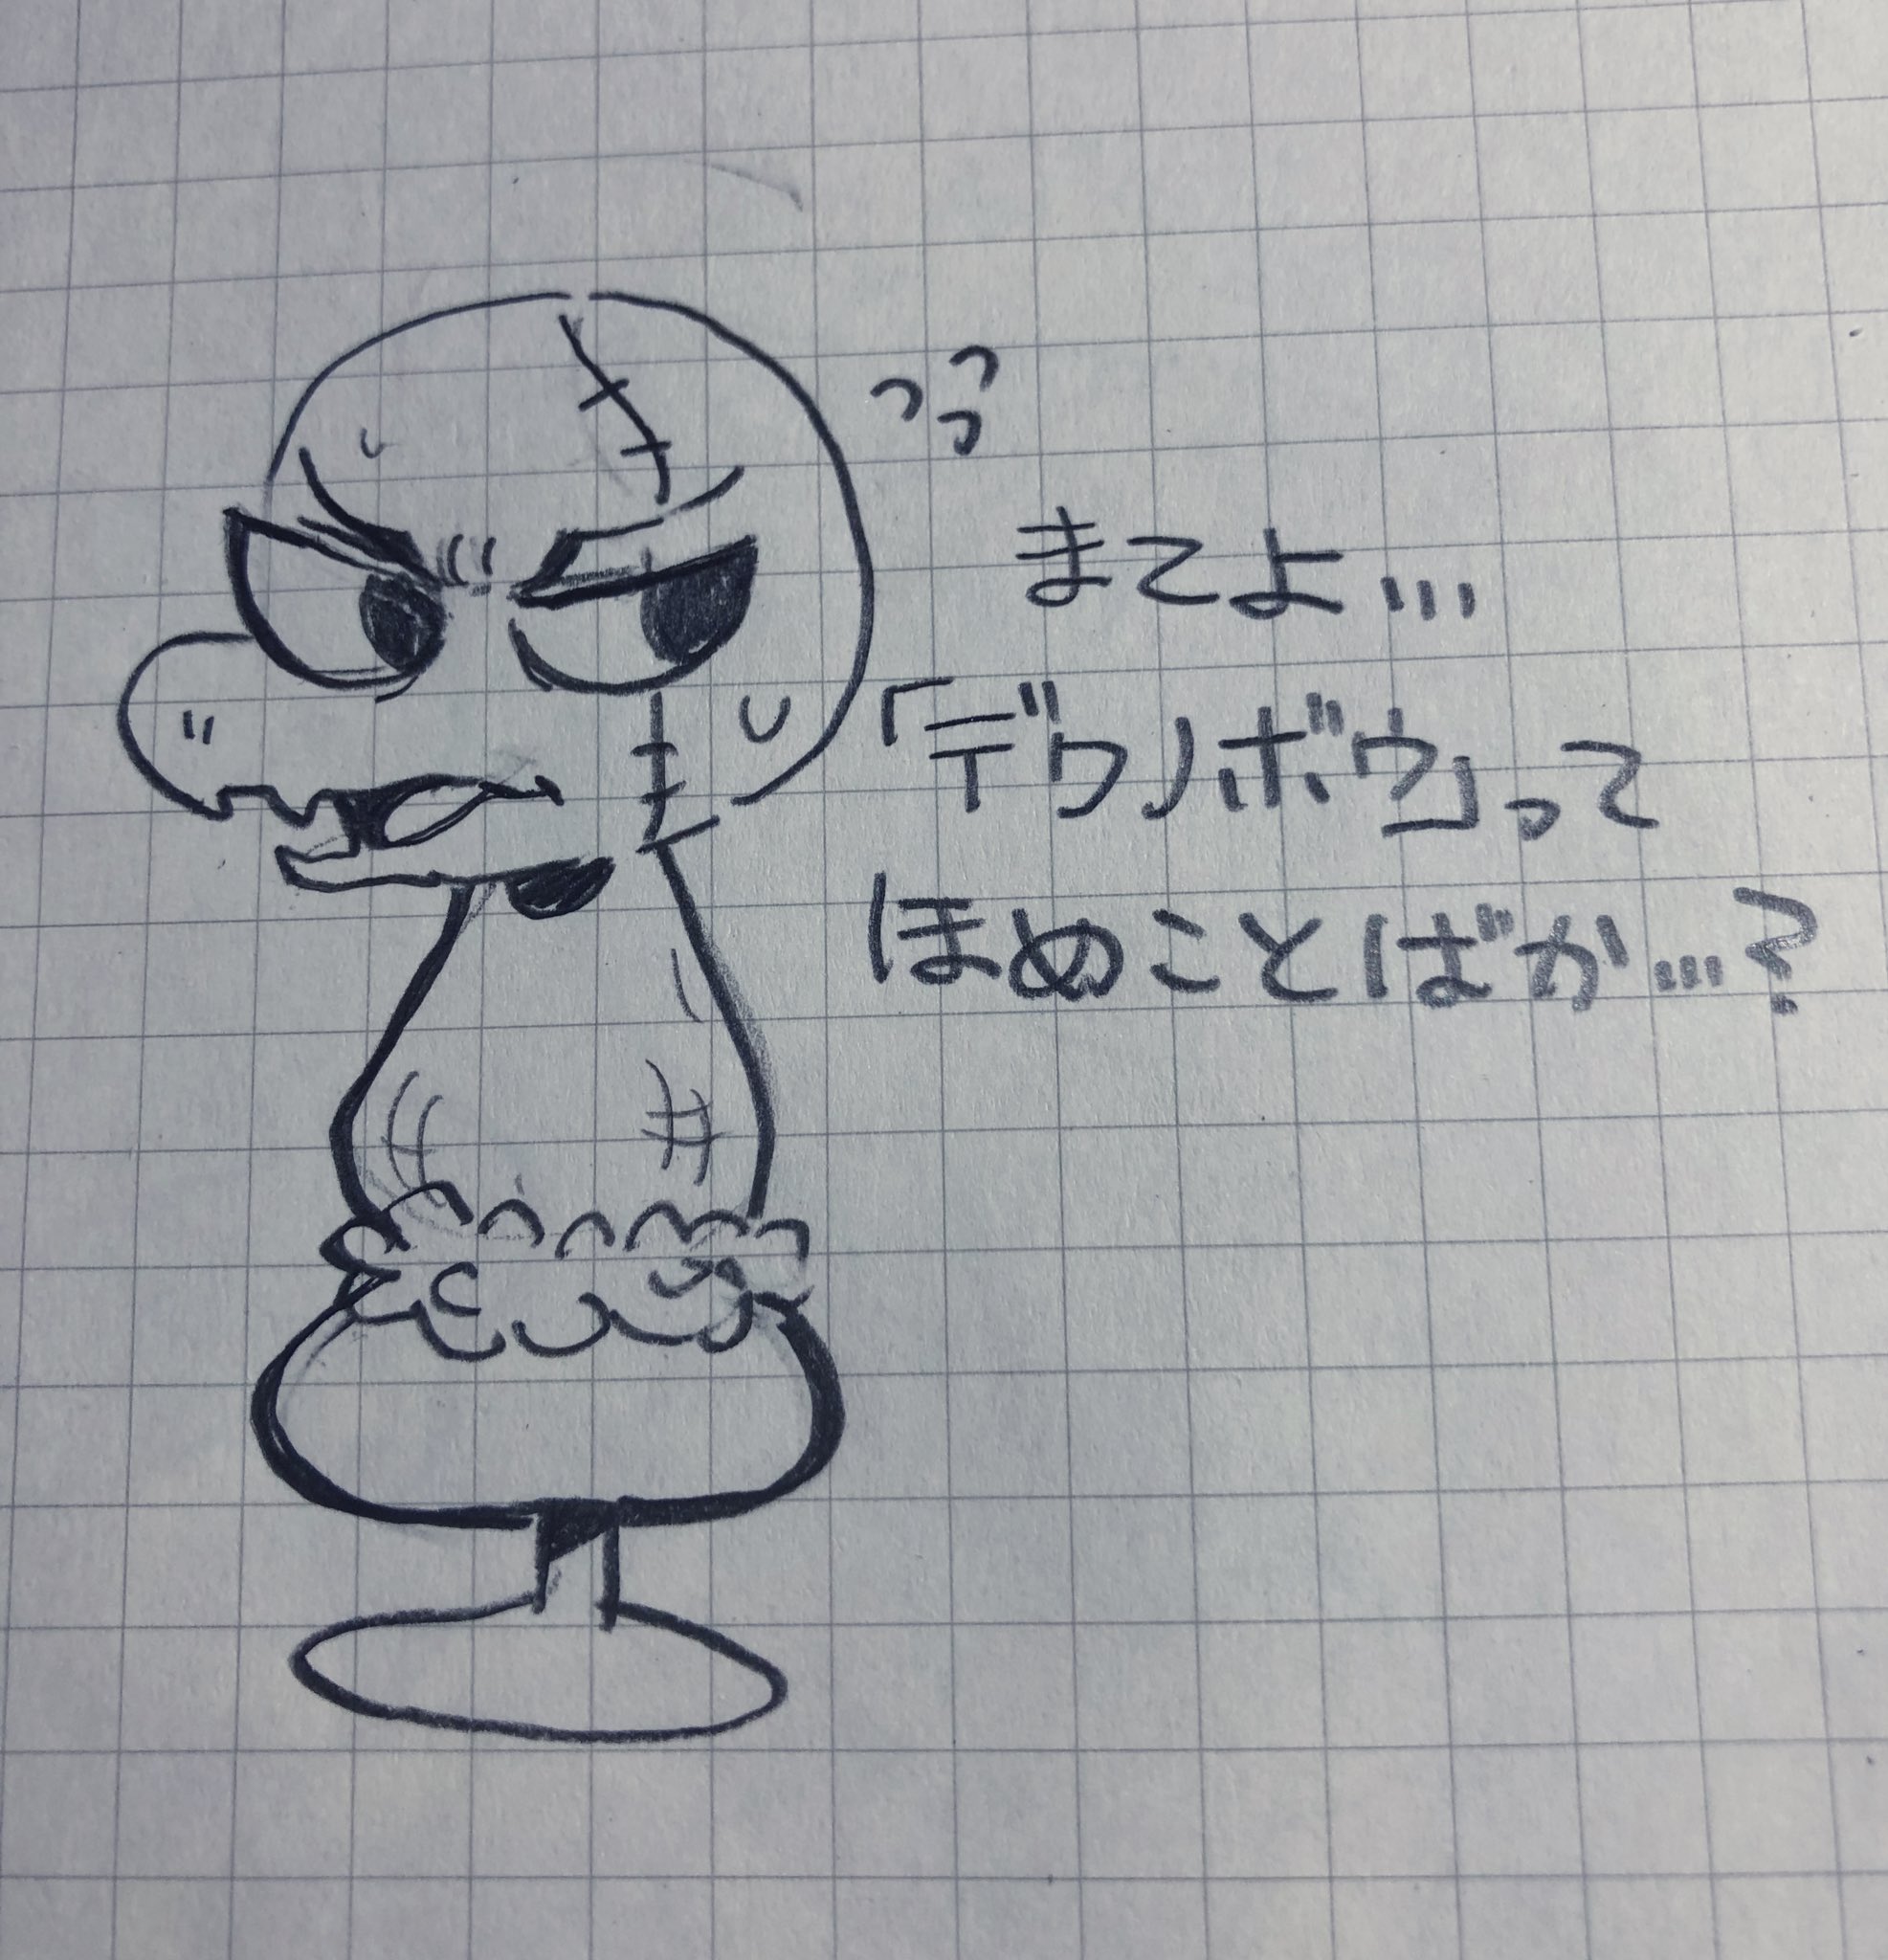 まてよ…
「デクノボウ」って
ほめことばか…?